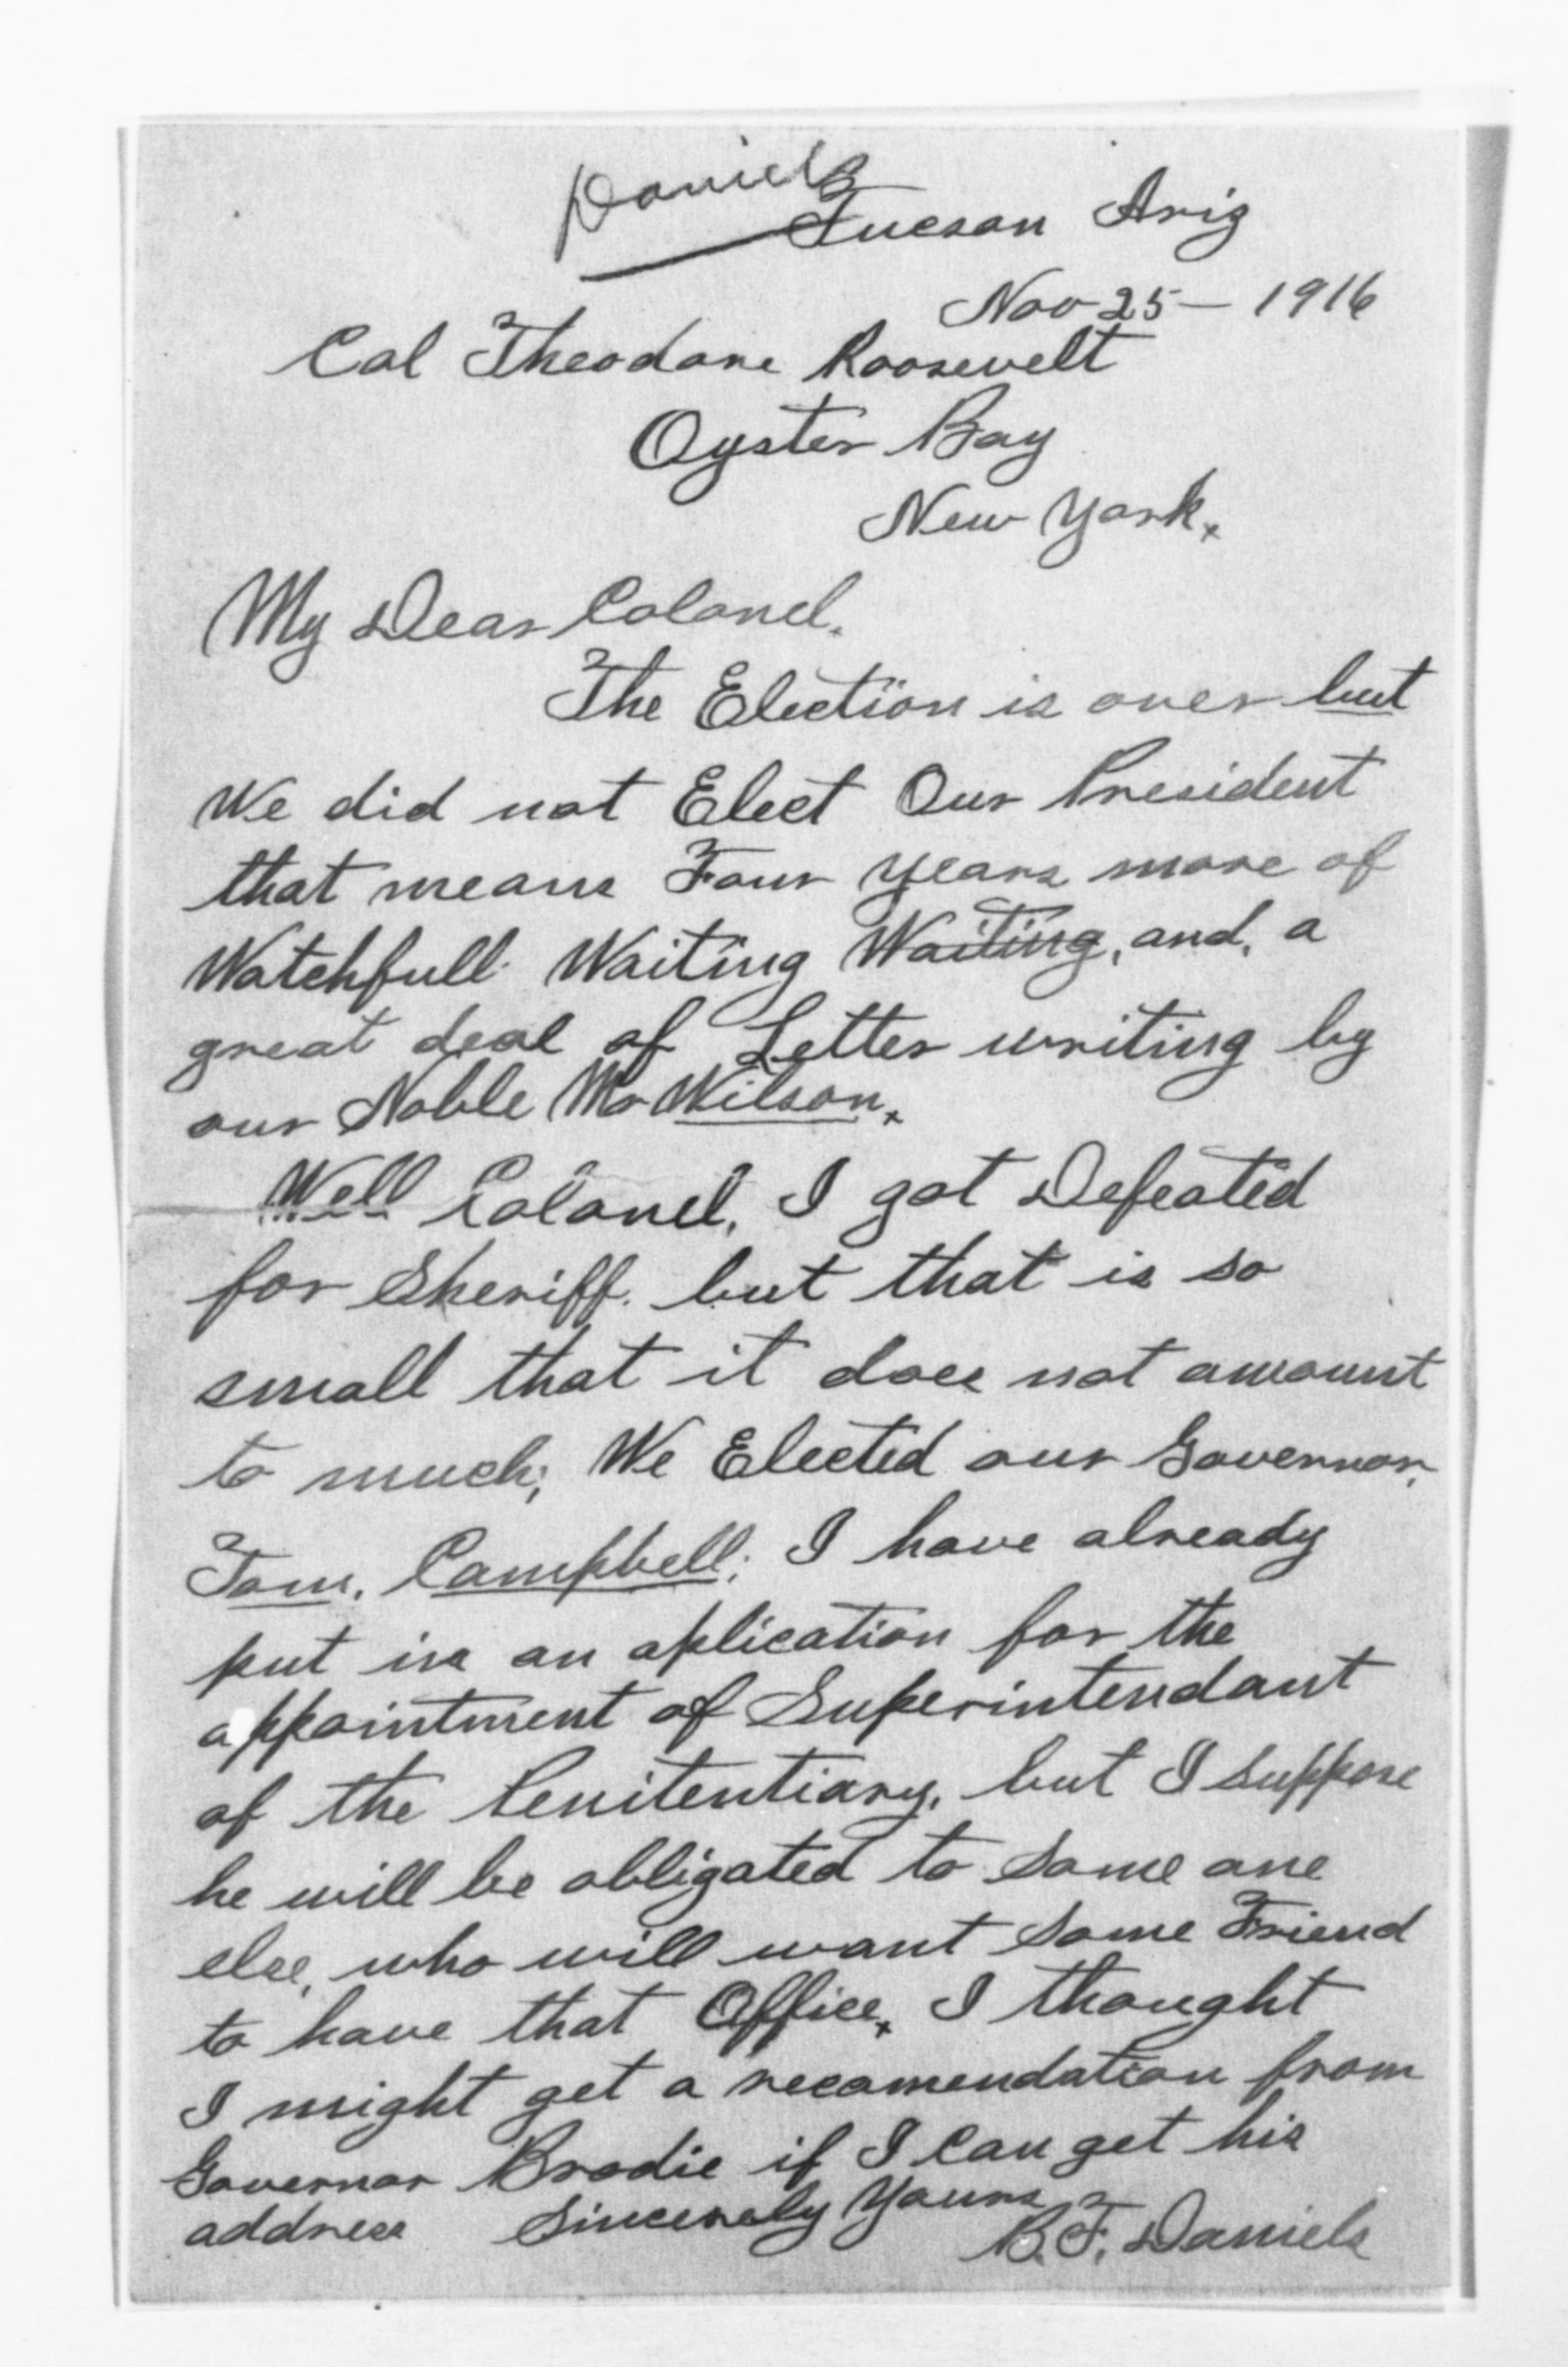 Daniels
Tucson Ariz
Nov 25 – 1916
Col Theodore Roosevelt
Oyster Bay
New York.
My Dear Colonel.
The Election is over but
We did not Elect Our President
that means Four years more of
Watchfull Waiting Waiting, and, a
great deal of Letter writing by
our Noble Mr Wilson.
Well Colonel, I got Defeated
for Sheriff. but that is so
small that it does not amount
to much; We Elected our Governor.
Tom. Campbell; I have already
put in an aplication for the
appointment of Superintendant
of the Penitentiary, but I suppose
he will be obligated to some one
else, who will want some Friend
to have that Office. I thought
I might get a recomendation from
Governor Brodie if I can get his
address Sincerely Yours
B. F. Daniels